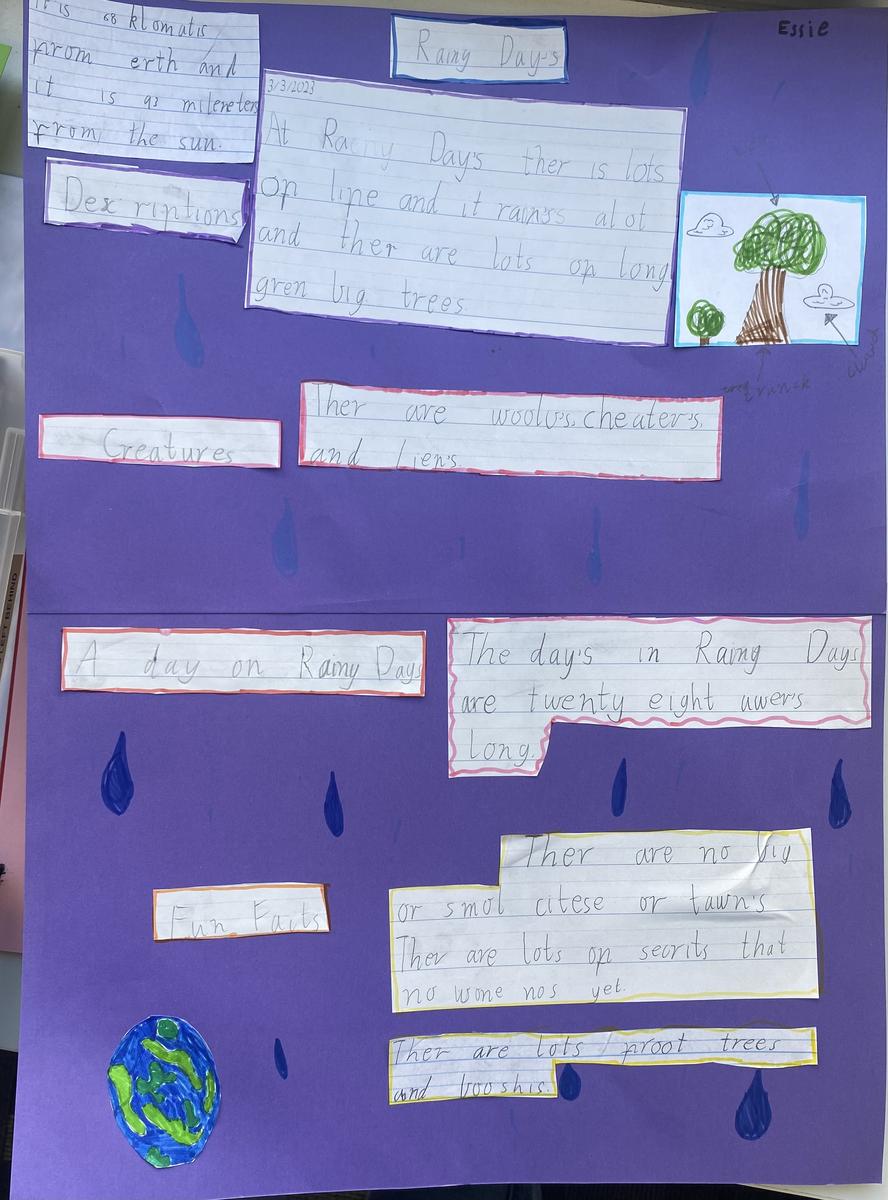 Essie
Rainy Day's
it is 68 klomatis
from erth and
it is 93 milereters
from the sun.
3/3/2023
At Rainy Day's ther is lots
op lipe and it rainss alot
and ther are lots op long
gren big trees
Dex riptions
cloud
trunck
Creatures
Ther are woolvs, cheater's,
and Lien's
A day on Rainy Days
The day's in Rainy Days
are twenty eight uwers
long.
Fun Facts
Ther are no big
or smol citese or tawn's
Ther are lots op secrits that
no wone nos yet.
Ther are lots proot trees
and booshis.
LEFT BEHIND